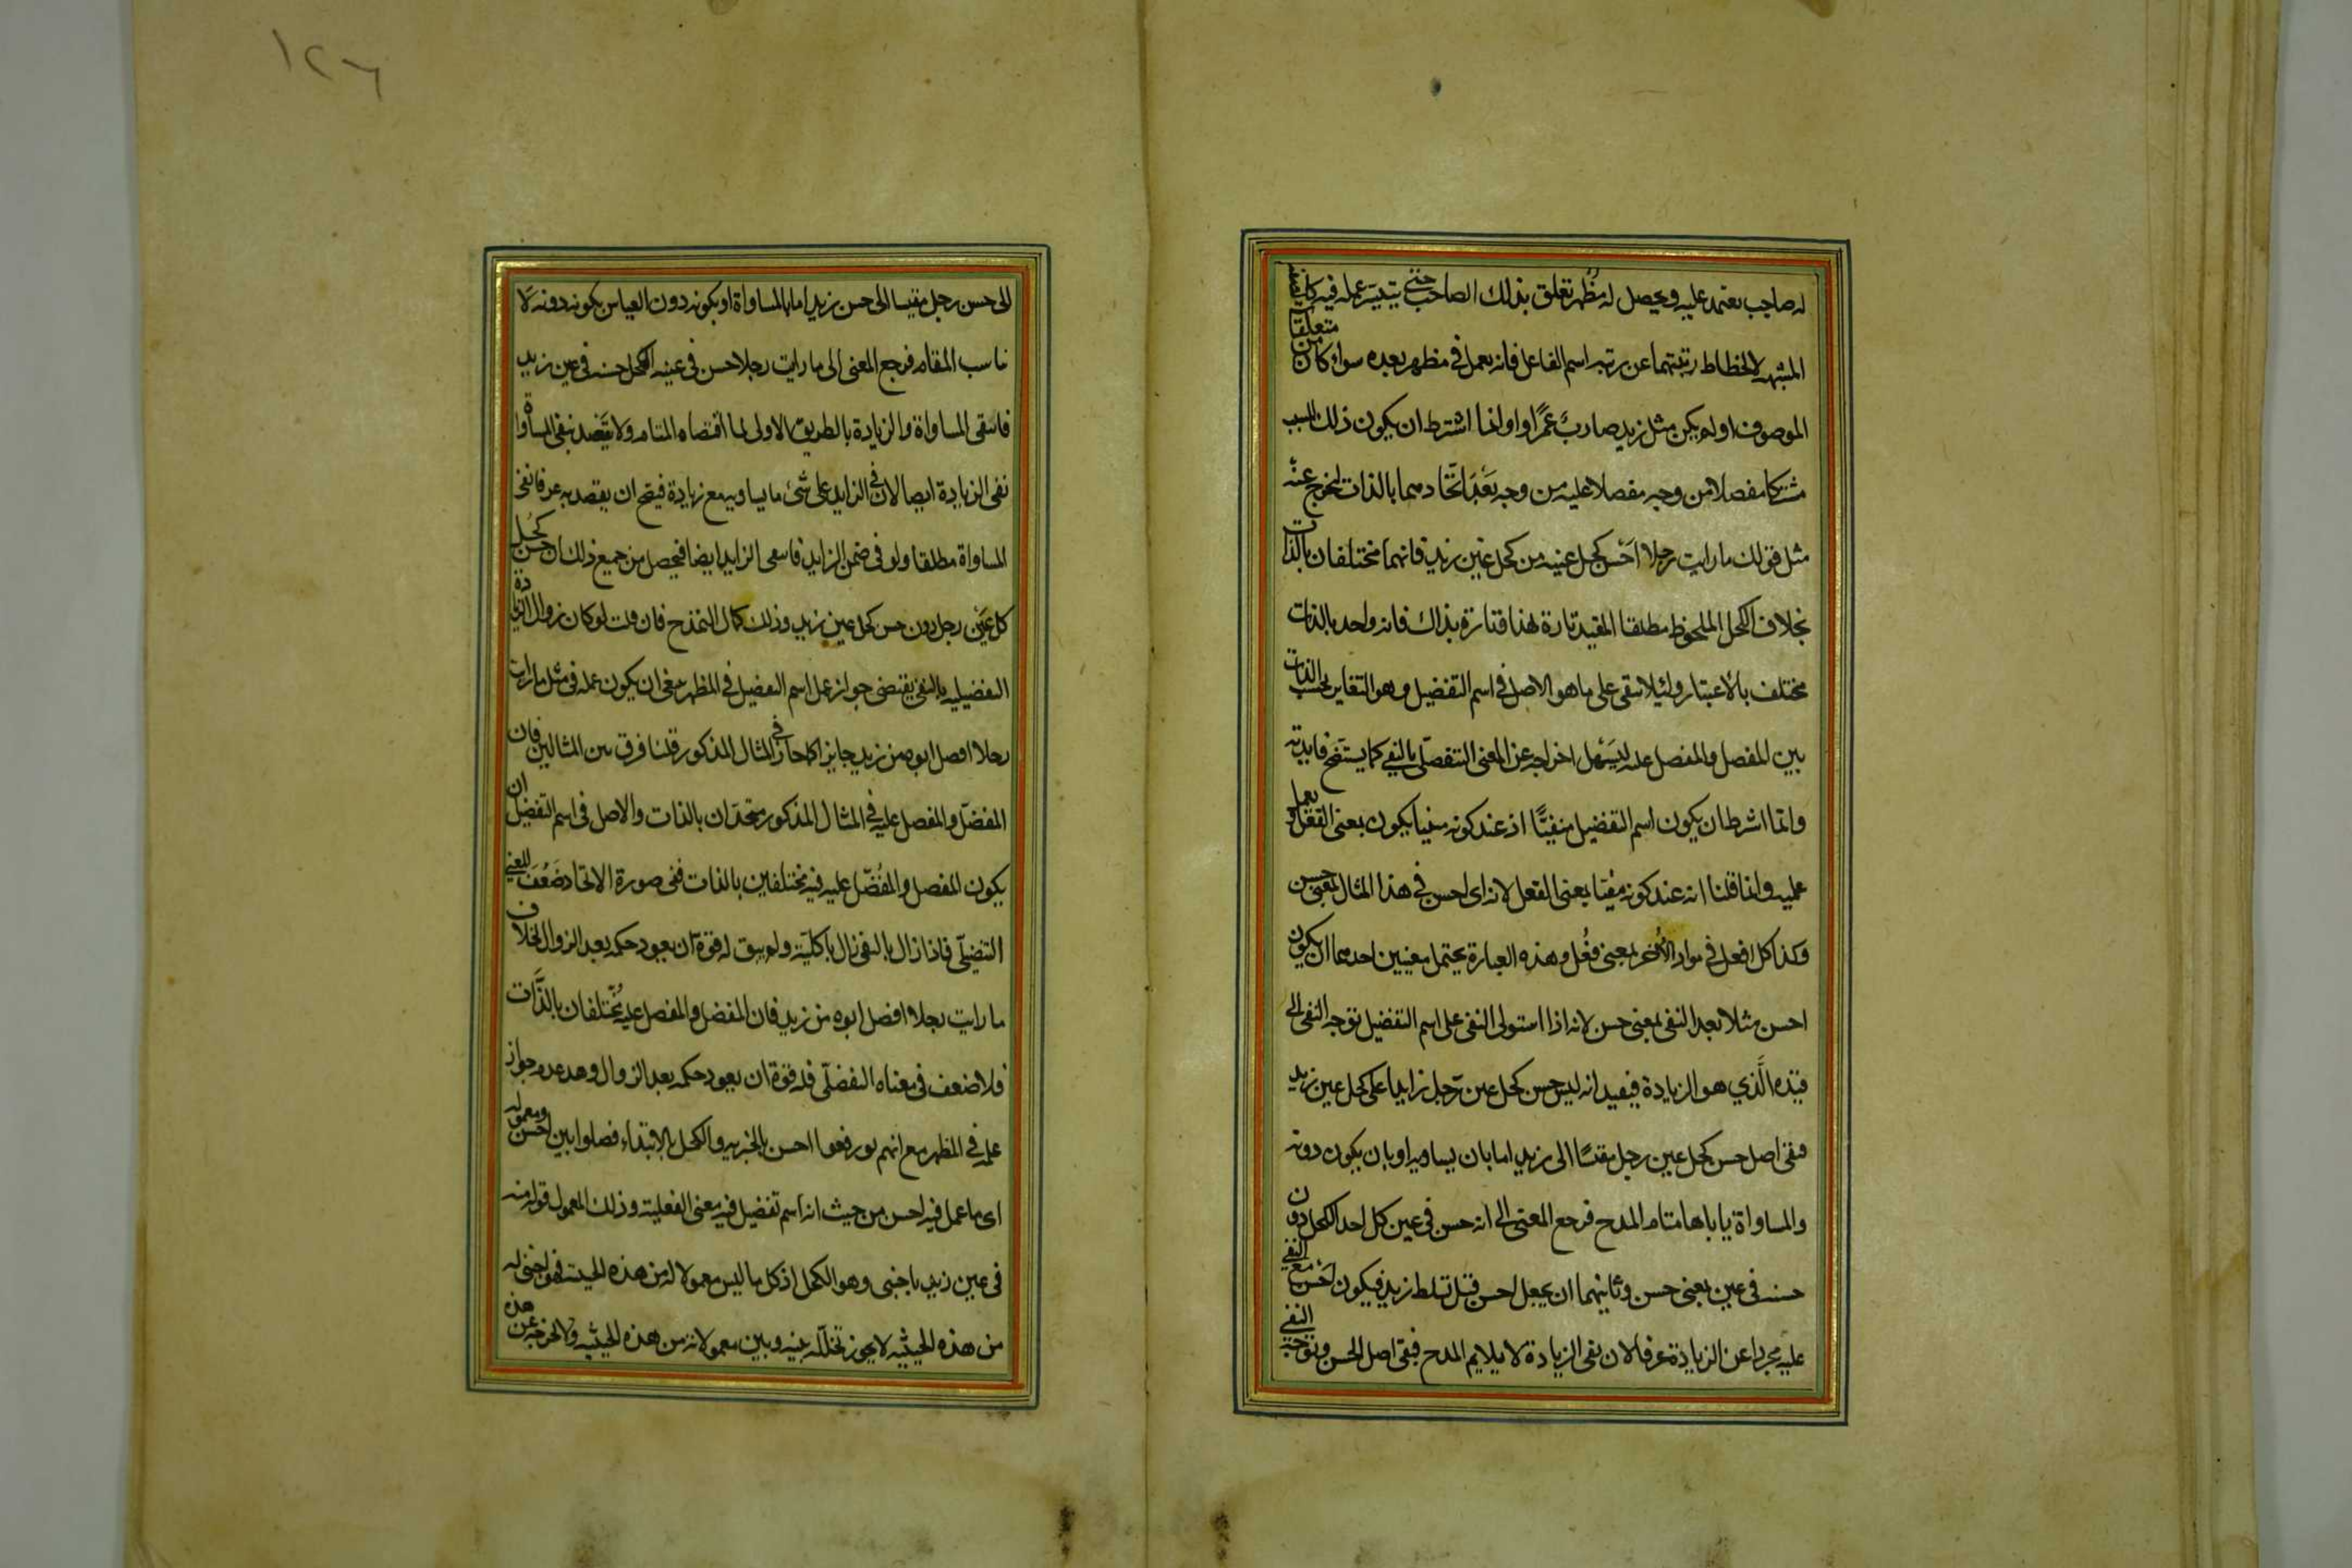 له صاحب يعتمد عليه ويحصل له مظهر تعلق بذلك الصاحب حتى يتيسر عمله فيه كالصفة
المشبهة لانحطاط رتبتهما عن رتبة اسم الفاعل فانه يعمل في مظهر بعده سواء كان من متعلقات
الموصوف او لم يكن مثل زيد ضارب عمرا وانما اشترط ان يكون ذلك المسبب
مشتركا مفضلا من وجه مفضلا عليه من وجه بعد اتحادهما بالذات ليخرج عنه
مثل قولك ما رايت رجلا احسن كحل عينه من كحل عين زيد فانهما مختلفان بالذات
بخلاف الكحل الملحوظ مطلقا المقيد تارة بهذا وتارة بذاك فانه واحد بالذات
مختلف بالاعتبار ولئلا يبقى على ما هو الاصل في اسم التفضيل وهو التغاير بحسب الذات
بين المفضل والمفضل عليه ليسهل اخراجه عن المعنى التفضيلي بالنفي كما يستضح فايدته
وانما اشترط ان يكون اسم التفضيل منفيا اذ عند كونه منفيا يكون بمعنى الفعل ويعمل
عمله وانما قلنا انه عند كونه منفيا بمعنى الفعل لانه اى احسن في هذا المثال بمعنى حسن
وكذا كل افعل في مواد الأخر بمعنى فعل وهذه العبارة يحتمل معنيين احدهما ان يكون
احسن مثلا بعد النفي بمعنى حسن لانه اذا استولى النفي على اسم التفضيل توجه النفى الى
قيده الذي هو الزيادة فيفيد انه ليس حسن كحل عين رجل زايدا على كحل عين زيد
فبقى اصل حسن كحل عين رجل مقيسا الى زيد اما بان يساويه او بان يكون دونه
والمساواة ياباها مقام المدح فرجع المعنى الى انه حسن في عين كل احد الكحل دون
حسنه في عين بمعنى حسن وثانيهما ان يجعل احسن قبل تسلط زيد فيكون احسن مع النفي
عليه مجردا عن الزيادة عرفا لان نفى الزيادة لا يلايم المدح فبقى اصل الحسن وتوجه النفي
١٢٦
الى حسن رجل مقيسا الى حسن زيد اما بالمساواة او بكونه دون القياس بكونه دونه لا
ناسب المقام فرجع المعنى الى ما رايت رجلا حسن في عينه الكحل حسنه في عين زيد
فانتفى المساواة والزيادة بالطريق الاولى لما اقتضاه المقام ولا يقصد بنفى المساواة
نفى الزيادة ايضا لان في الزايد على شئ ما يساويه مع زيادة فيصح ان يقصد به عرفا نفى
المساواة مطلقا ولو في ضمن الزايد فانتفى الزايد ايضا فيحصل من جميع ذلك ان حسن كحل
كل عين رجل دون حسن كحل عين زيد وذلك كمال التمدح فان قلت لو كان زوال الزيادة
التفضيليه بالنفي يقتضى جواز عمل اسم التفضيل في المظهر ينبغى ان يكون عمله في مثل ما رايت
رجلا افضل ابوه من زيد جايزا كما جاز في المثال المذكور قلنا فرق بين المثالين فان
المفضل والمفضل عليه في المثال المذكور متحدان بالذات والاصل في اسم التفضيل ان
يكون المفضل والمفضل عليه فيه مختلفين بالذات ففى صورة الاتحاد ضعف المعنى
التفضيلي فاذا زال بالنفى زال بالكلية ولم يبق له قوة ان يعود حكمه بعد الزوال بخلاف
ما رايت رجلا افضل ابوه من زيد فان المفضل والمفضل عليه مختلفان بالذات
فلا ضعف في معناه التفضيلى فله قوة ان يعود حكمه بعد الزوال وهو عدم جواز
عمله في المظهر مع انهم لو رفعوا احسن بالخبرية والكحل بالابتداء فصلوا بين احسن ومعموله
اى ما عمل فيه احسن من حيث انه اسم تفضيل فيه معنى الفعلية وذلك المعمول قوله منه
في عين زيد باجنبى وهو الكحل اذ كل ما ليس معمولا له من هذه الحيثية فهو اجنبى له
من هذه الحيثيه لا يجوز تخلله بينه وبين معمولاته من هذه الحيثيه ولا لخرجه عن هذه